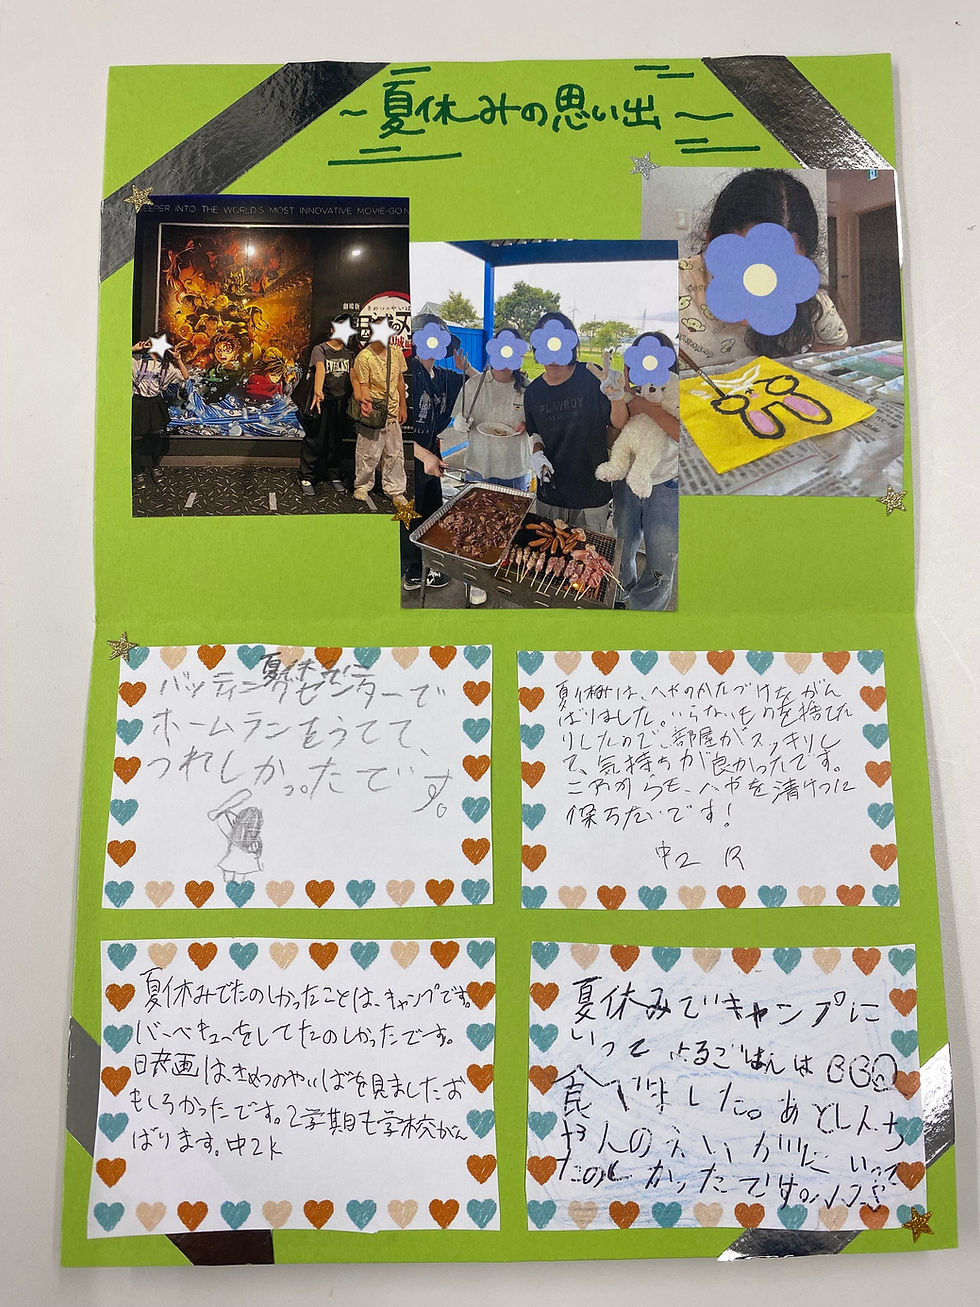 ~夏休みの思い出~
EEPER INTO THE WORLD'S MOST INNOVATIVE MOVIE-GO
劇場版
EVERLAST
PLAYBOY
夏休みに
バッティングセンターで
ホームランをうてて、
うれしかったです。
夏休みは、へやのかたづけをがん
ばりました。いらないものを捨てた
りしたので、部屋がスッキリし
て、気持ちが良かったです。
これからも、へやを清けつに
保ちたいです!
中2 R
夏休みでたのしかったことは、キャンプです。
バーベキューをしてたのしかったです。
映画は、きめつのやいばを見ましたお
もしろかったです。2学期も学校がん
ばります。中2K
夏休みでキャンプに
いって よるごはんは BBQ
食べました。あとしんち
ゃんのえいがにいって
たのしかったです。